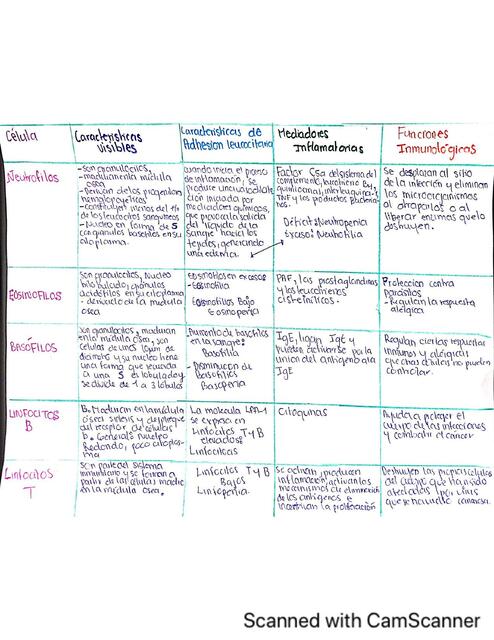 Célula
Características
visibles
Características de
Adhesion leucocitaria
Mediadores
Inflamatorias
Funciones
Inmunológicas
Neutrofilos
-son granulocitos,
-maduran en la médula
osea
hematopoyeticos
-constituyen menos del 1%
de los leucocitos sanguineos
-Nucleo en forma de S
con granulos basofilos en su
citoplasma
cuando inicia el proceso
de inflamación, se
produce una
iniciada por
mediadores químicos,
que provoca la salida
del liquido de la
sangre hacia los
tejidos, generando
un edema
Factor C5a del sistema del
complemento, leucotrieno B4,
TNF y los productos
Déficit: Neutropenia
Exceso: Neutrofilia
Se desplazan al sitio
de la infección y eliminan
los microorganismos
al atraparlos o al
liberar enzimas que lo
destruyen.
EOSINOFILOS
Son granulocitos, Nucleo
bilobulado, granulos
acidofilos en su citoplasma
-derivado de la medula
osea
eosinofilos en exceso
-Eosinofilia
Eosinofilos Bajo
Eosinopenia
PAF, las prostaglandinas
y los leucotrienos
cisteinilicos.
Proteccion contra
parasitos
-Regulan la respuesta
alergica
BASÓFILOS
Son granulocitos, maduran
en la médula osea, son
celulas de unos 10μm de
diametro y su nucleo tiene
una forma que recuerda
a una S es lobulado y
se divide de 2 a 3 lobulos
-Aumento de basofilos
en la sangre:
Basofilia
-Disminución de
Basofilos
Basopenia
IgE, ligan IgE y
pueden activarse por la
union del antigeno a la
IgE
Regulan ciertas respuestas
inmunes y alergicas
que otras celulas no pueden
controlar.
LINFOCITOS
B
B. Maduran en la médula
osea
del receptor de celulas
b. General: nucleo
Redondo, poco citoplas-
ma
La molecula LFA-1
se expresa en
Linfocitos T y B
elevados:
Linfocitosis
Citoquinas
Ayuda a proteger el
cuerpo de las infecciones
y combatir el cáncer
Linfocitos
T
son parte del sistema
inmunitario y se forman a
partir de las células madre
en la médula osea.
Linfocitos T y B
Bajos
Linfopenia.
Se activan, producen
inflamación, activan los
mecanismos de eliminación
de los antigenos e
la proliferación
Destruyen las propias células
del cuerpo que han sido
afectadas por virus
cancerosa.
Scanned with CamScanner